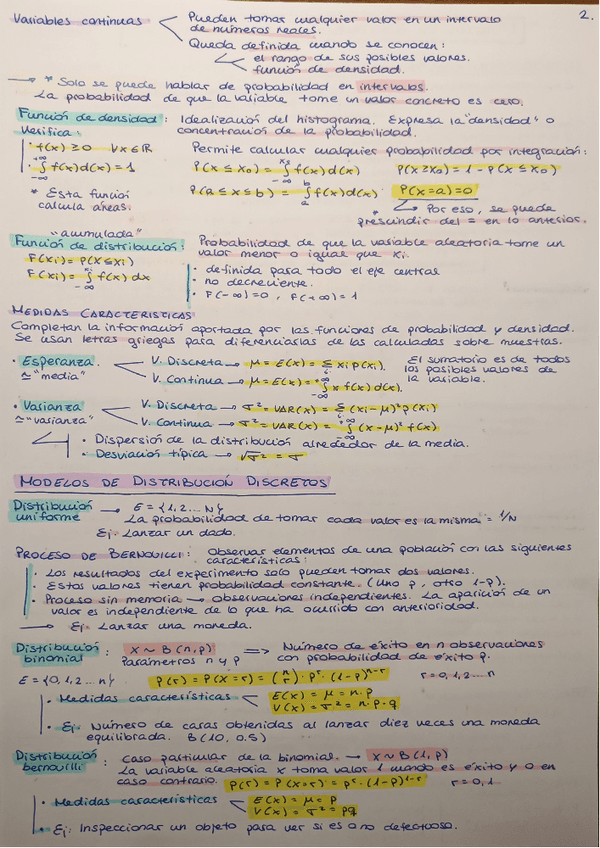 2.
Variables continuas < Pueden tomar cualquier valor en un intervalo
de números reales.
Queda definida cuando se conocen:
el rango de sus posibles valores.
función de densidad.
→ * Solo se puede hablar de probabilidad en intervalos.
La probabilidad de que la variable tome un valor concreto es cero.
Función de densidad: Idealización del histograma. Expresa la "densidad" o
concentración de la probabilidad.
Verifica:
· f(x) ≥ 0 ∀x ∈ ℝ
· ∫_{-∞}^{+∞} f(x)d(x) = 1
* Esta función
calcula áreas.
Permite calcular cualquier probabilidad por integración:
P(x ≤ x₀) = ∫_{-∞}^{x₀} f(x)d(x) P(x ≥ x₀) = 1 - P(x ≤ x₀)
P(a ≤ x ≤ b) = ∫_{a}^{b} f(x)d(x) P(x=a)=0
* Por eso, se puede
prescindir del = en lo anterior.
"acumulada"
Función de distribución: Probabilidad de que la variable aleatoria tome un
valor menor o igual que xi.
F(xi) = P(x ≤ xi)
F(xi) = ∫_{-∞}^{xi} f(x) dx
· definida para todo el eje central
· no decreciente.
· F(-∞)=0, F(+∞)=1
MEDIDAS CARACTERISTICAS
Completan la información aportada por las funciones de probabilidad y densidad.
Se usan letras griegas para diferenciarlas de las calculadas sobre muestras.
· Esperanza < V. Discreta → μ = E(x) = Σ xi p(xi).
≃ "media" V. Continua → μ = E(x) = ∫_{-∞}^{+∞} x f(x) d(x).
El sumatorio es de todos
los posibles valores de
la variable.
· Varianza < V. Discreta → σ² = VAR(x) = Σ (xi-μ)² p(xi)
≃ "varianza" V. Continua → σ² = VAR(x) = ∫_{-∞}^{+∞} (x-μ)² f(x)
· Dispersión de la distribución alrededor de la media.
· Desviación típica → √σ² = σ
MODELOS DE DISTRIBUCIÓN DISCRETOS
Distribución uniforme → E = {1,2... N}
La probabilidad de tomar cada valor es la misma = 1/N
Ej. Lanzar un dado.
PROCESO DE BERNOUILLI: Observar elementos de una población con las siguientes
características:
· Los resultados del experimento solo pueden tomar dos valores.
· Estos valores tienen probabilidad constante. (uno p, otro 1-p).
· Proceso sin memoria → observaciones independientes. La aparición de un
valor es independiente de lo que ha ocurrido con anterioridad.
→ Ej. Lanzar una moneda.
Distribución binomial: X ~ B(n,p) => Número de éxito en n observaciones
Parámetros n y p con probabilidad de éxito p.
E = {0,1,2... n} P(r) = P(X=r) = (n r) · p^r · (1-p)^{n-r} r=0,1,2...n
· Medidas características < E(x) = μ = n·p
V(x) = σ² = n·p·q
· Ej. Número de caras obtenidas al lanzar diez veces una moneda
equilibrada. B(10, 0.5)
Distribución bernouilli: Caso particular de la binomial. → X ~ B(1,p)
La variable aleatoria X toma valor 1 cuando es éxito y 0 en
caso contrario. P(r) = P(X=r) = p^r · (1-p)^{1-r} r=0,1
· Medidas características < E(x) = μ = p
V(x) = σ² = pq
· Ej: Inspeccionar un objeto para ver si es o no defectuoso.